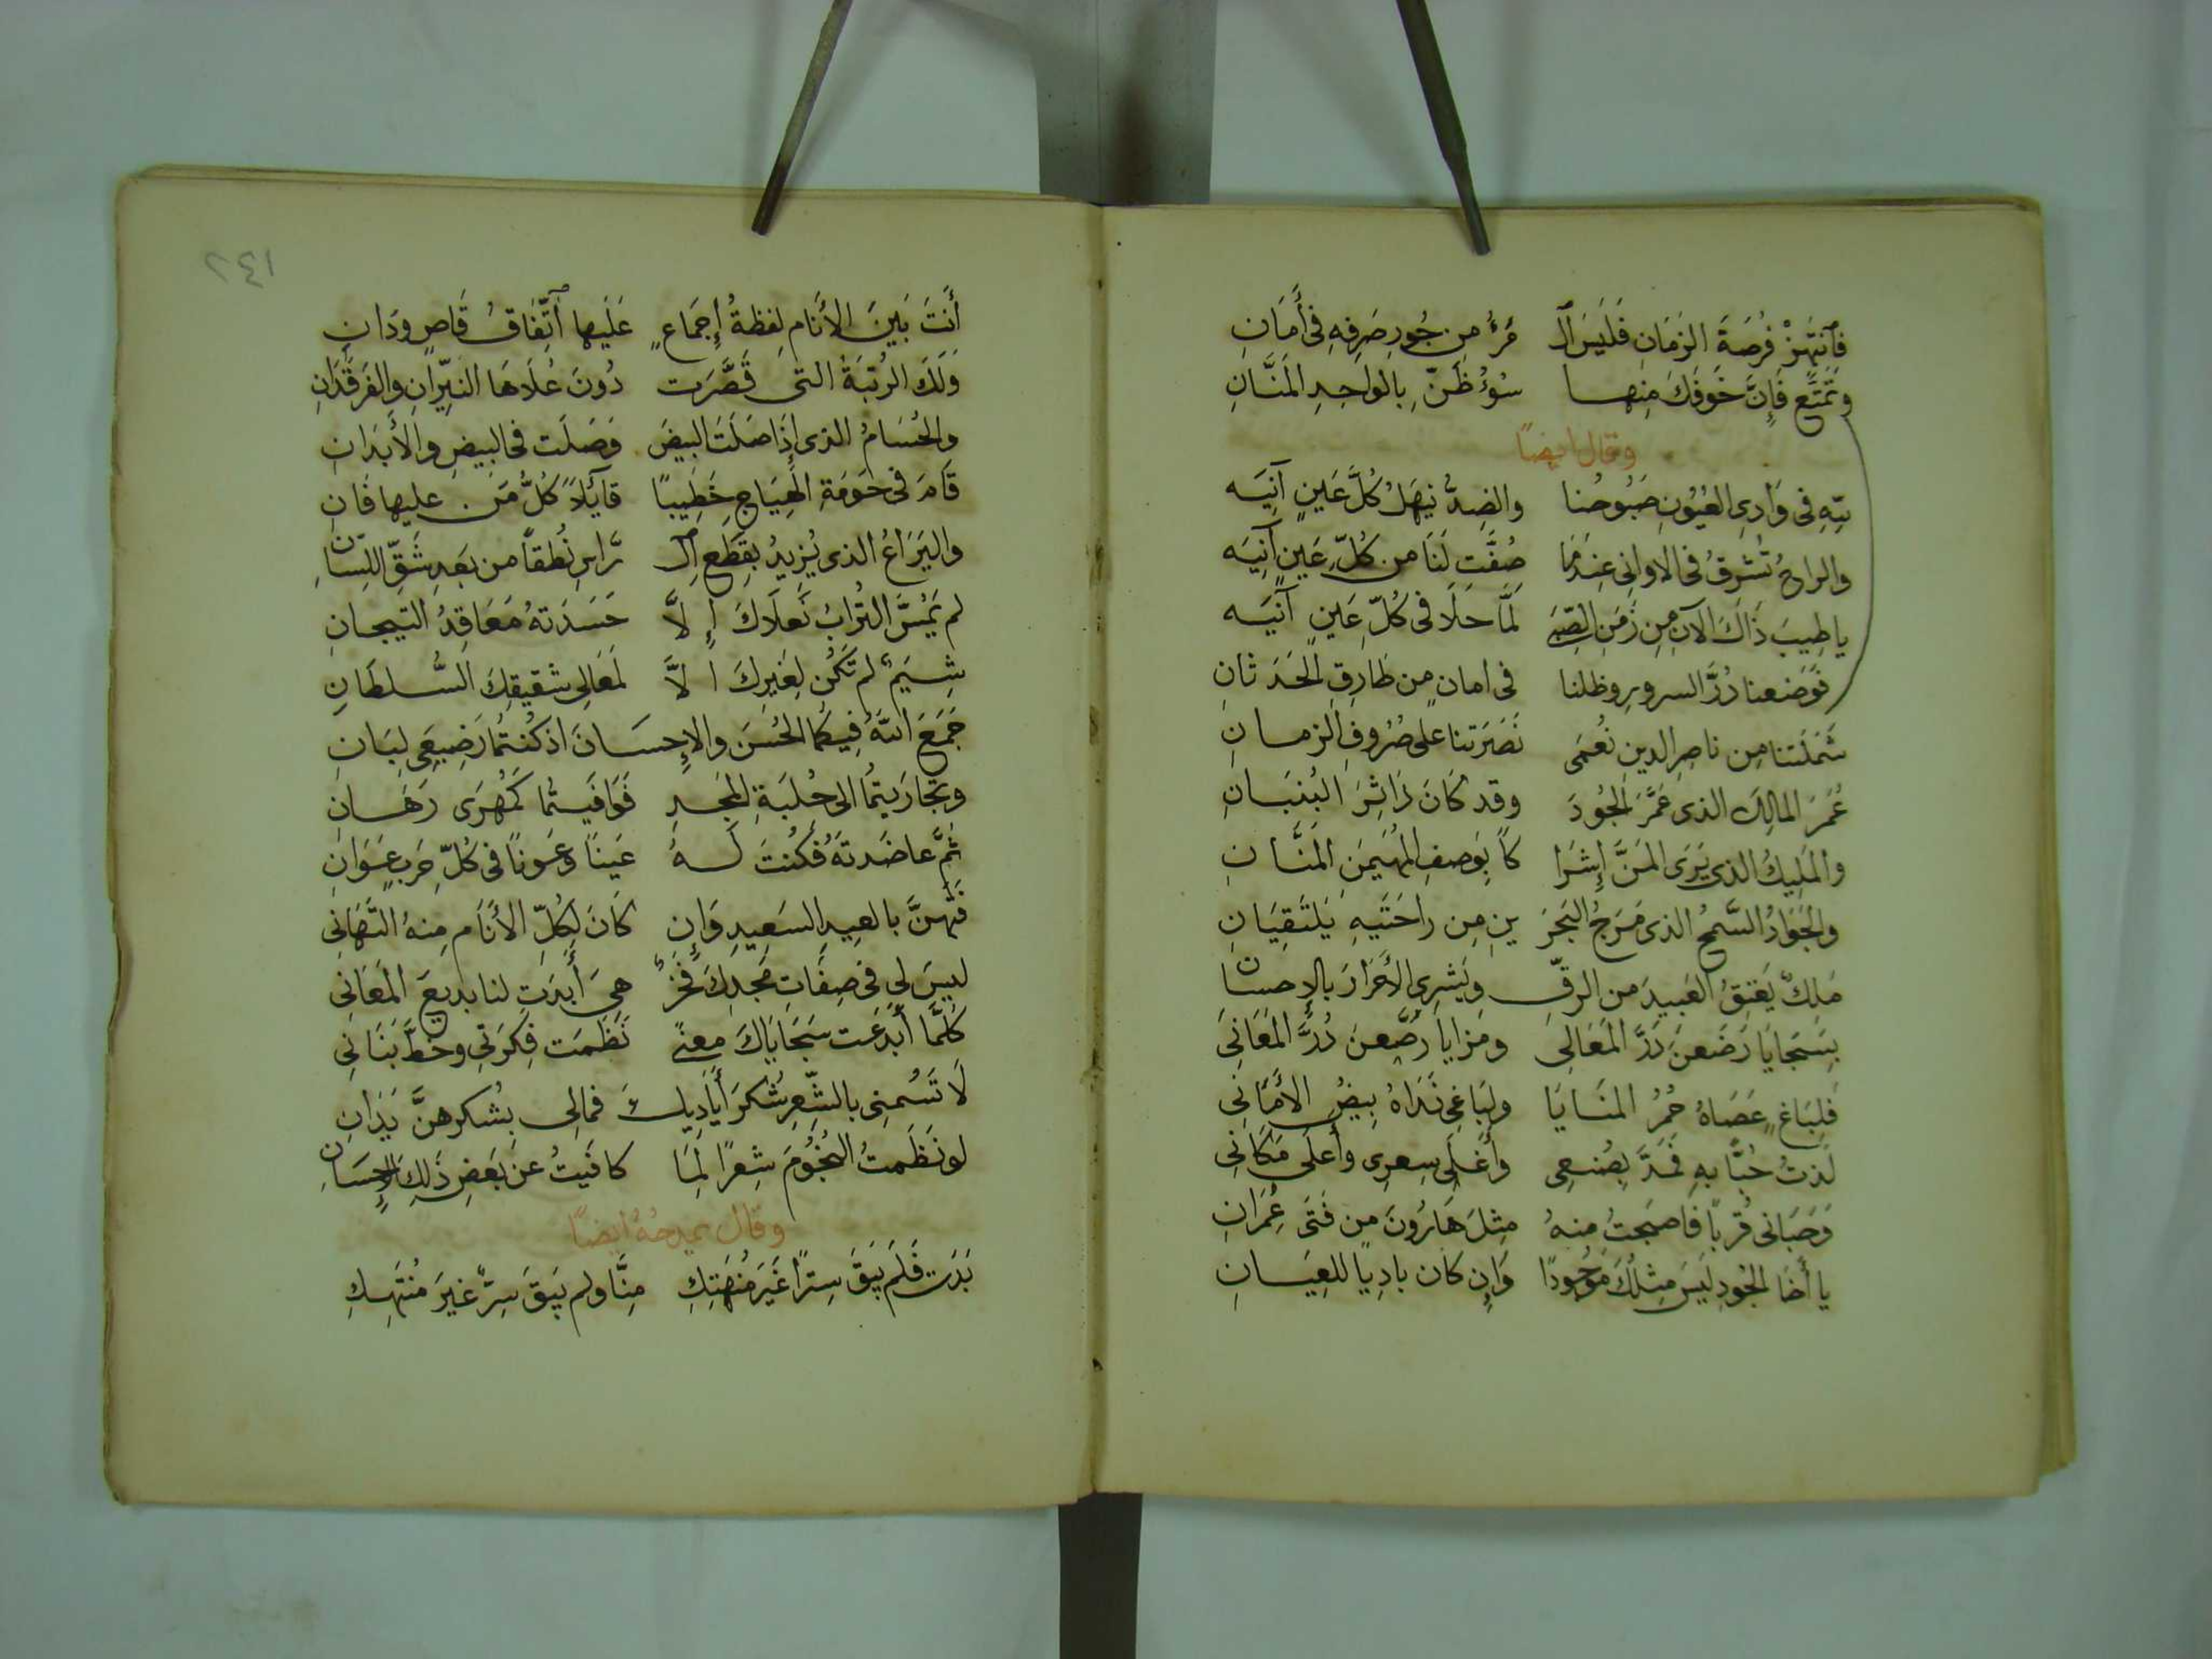 فَٱنتَهِزْ فُرصَةَ الزَمَانِ فَلَيسَ ٱلـ مَرءُ مِن جُورِ صَرفِهِ فى أَمَانِ
وتَمَتَّع فَإِنَّ خَوفَكَ مِنهـا سُوءُ ظَنّ بِالواحِدِ المَنَّانِ
وقال ايضًا
بتِّهِ فى وَادِى العُيُونِ صَبُوحُنا والضِدُّ نِهَلْ كُلَّ عَينٍ آنِيَه
والراحُ تُشرِقُ فى الاوانى عِندَمَا صُفَّت لَنَا من كُلِّ عَينٍ آنِيَه
يا طِيبَ ذَاكَ الآنَ مِن زَمَنِ الصِّبَى لَمَّا حَلَا فى كُلّ عَينٍ آنيَه
فَوَضَعنا دُرَّ السرورِ وظلنا فى امانٍ من طَارِقِ الحَدَثانِ
شَمَلَتنا مِن ناصِرِ الدينِ نُعمَى نَصَرَتنا على صُرُوفِ الزمـانِ
عُمَرَ المالِك الذى عَمَّرَ الجُودَ وقد كَانَ دَاثِرَ البُنيَـانِ
والمَلِيكُ الذى يَرَى المَنَّ إِشرَا كًا بِوَصفِ المُهَيمِنِ المَنَّـانِ
والجَوَادُ السَّمحُ الذى مَرَجُ البَحرَ ينِ مِن راحَتَيهِ يَلتَقِيَانِ
مَلِكٌ يَعتِقُ العَبيدَ من الرقِّ ويَشرِى الأَحرَارَ بالإِحسانِ
بِسَجَايَا رَضَعنَ دَرَّ المَعَالِى ومَزايا رُصِّعنَ دُرَّ المَعَانِى
فَلِبَاغٍ عَصَاهُ حُمرُ المنَـايَا ولِبَاغِى نَدَاهُ بِيضُ الأَمَانِى
لُذتُ حُبًّا بهِ فَمَدَّ بِضُبعِى وأَغلَى سِعرِى وأَعلَى مَكَانِى
وَحَبَانى قُربًا فاصبَحتُ منهُ مِثلَ هَارُونَ مِن فَتَى عِمرَانِ
يا أَخَا الجُودِ لَيسَ مِثلُكَ مَوجُودًا وَإِن كان بادِيًا للعِيَـانِ
٢٤١
أَنتَ بَينَ الأَنَامِ لفظةُ إِجمَاعٍ عَلَيها اتِّفَاقُ قَاصٍ ودَانِ
وَلَكَ الرُتبَةُ التى قَصَّرَت دُونَ عُلَاهَا النيِّرانِ والفَرقَدَانِ
والحُسَامُ الذى إِذَا صَلَت البيضُ وَصَلَت فى البيضِ والأَبدَانِ
قَامَ فى حَومَةِ الهِيَاجِ خَطِيبًا قآئلاً كُلُّ مَن عليها فَانِ
واليَرَاعُ الذى يُزيدُ بقِطعِ ٱلـ رَّاسِ نُطقاً من بَعدِ شَقِّ اللِسَانِ
لم يَمُسَّ التُرابُ نَعلَاكَ إِلاَّ حَسَدَتهُ مَعَاقِدُ التيجـانِ
شِيَمٌ لم تَكُن لِغَيرِكَ الاَّ لمَعَالِى شقيقِكَ السُّـلطَانِ
جَمَعَ اللهُ فِيكُما الحُسنَ والإِحسَـانَ اذ كُنتُما رَضِيعَى لِبَانِ
وتَجَارَيتُما الى حُلبَةِ المَجـدِ فَوَافَيـتُما كَمُهرَى رَهَـانِ
ثُمَّ عاضَدتَهُ فَكُنتَ لَـهُ عَينًا وعَونًا فى كُلّ حَربٍ عَوَانِ
فَتَهَنَّ بالعِيدِ السَعِيدِ وَإِن كَانَ لِكُلِّ الأَنَامِ مِنهُ التَّهَانِى
ليسَ لى فى صِفَاتِ مَجدِكَ فَخرٌ هِىَ أَبدَت لنا بديعَ المَعَانى
كُلَّما أَبدَعت سَجَايَاكَ معنًى نَظَمَت فِكرَتِى وخَطَّ بَنَانِى
لَا تَسُمنِى بالشِّعرِ شُكرَ أَيَادِيكَ فمالِى بِشُكرهنَّ يَدَانِ
لو نَظَمتُ النُجُومَ شِعرًا لِمَا كافَيتُ عن بَعضِ ذَلِكَ الإِحسَانِ
وقال يمدحُهُ ايضًا
بَدَت فَلَم يَبقَ سِترًا غَيرَ مُنهَتِكِ مِنَّا ولم يَبقَ سِرٌّ غيرَ مُنتَهِـكِ